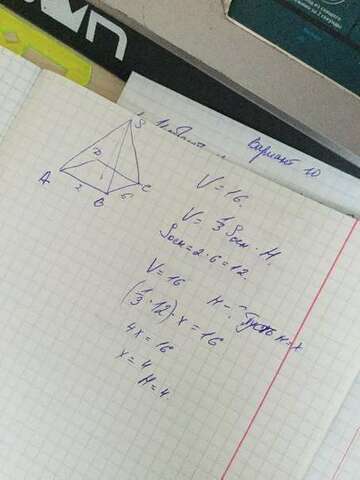 Вариант 10
S
D
A
C
B
2
6
V=16.
V= 1/3 Sосн · H.
Sосн=2·6=12.
V=16 H-? Пусть H=x
(1/3·12)·x=16
4x=16
x=4
H=4